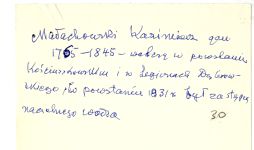 Małachowski Kazimierz gen
1765-1845 - walczy w powstaniu
Kościuszkowskim i w Legionach Dąbrow-
skiego. Po powstaniu 1931 r był zastępcą
naczelnego wodza
30